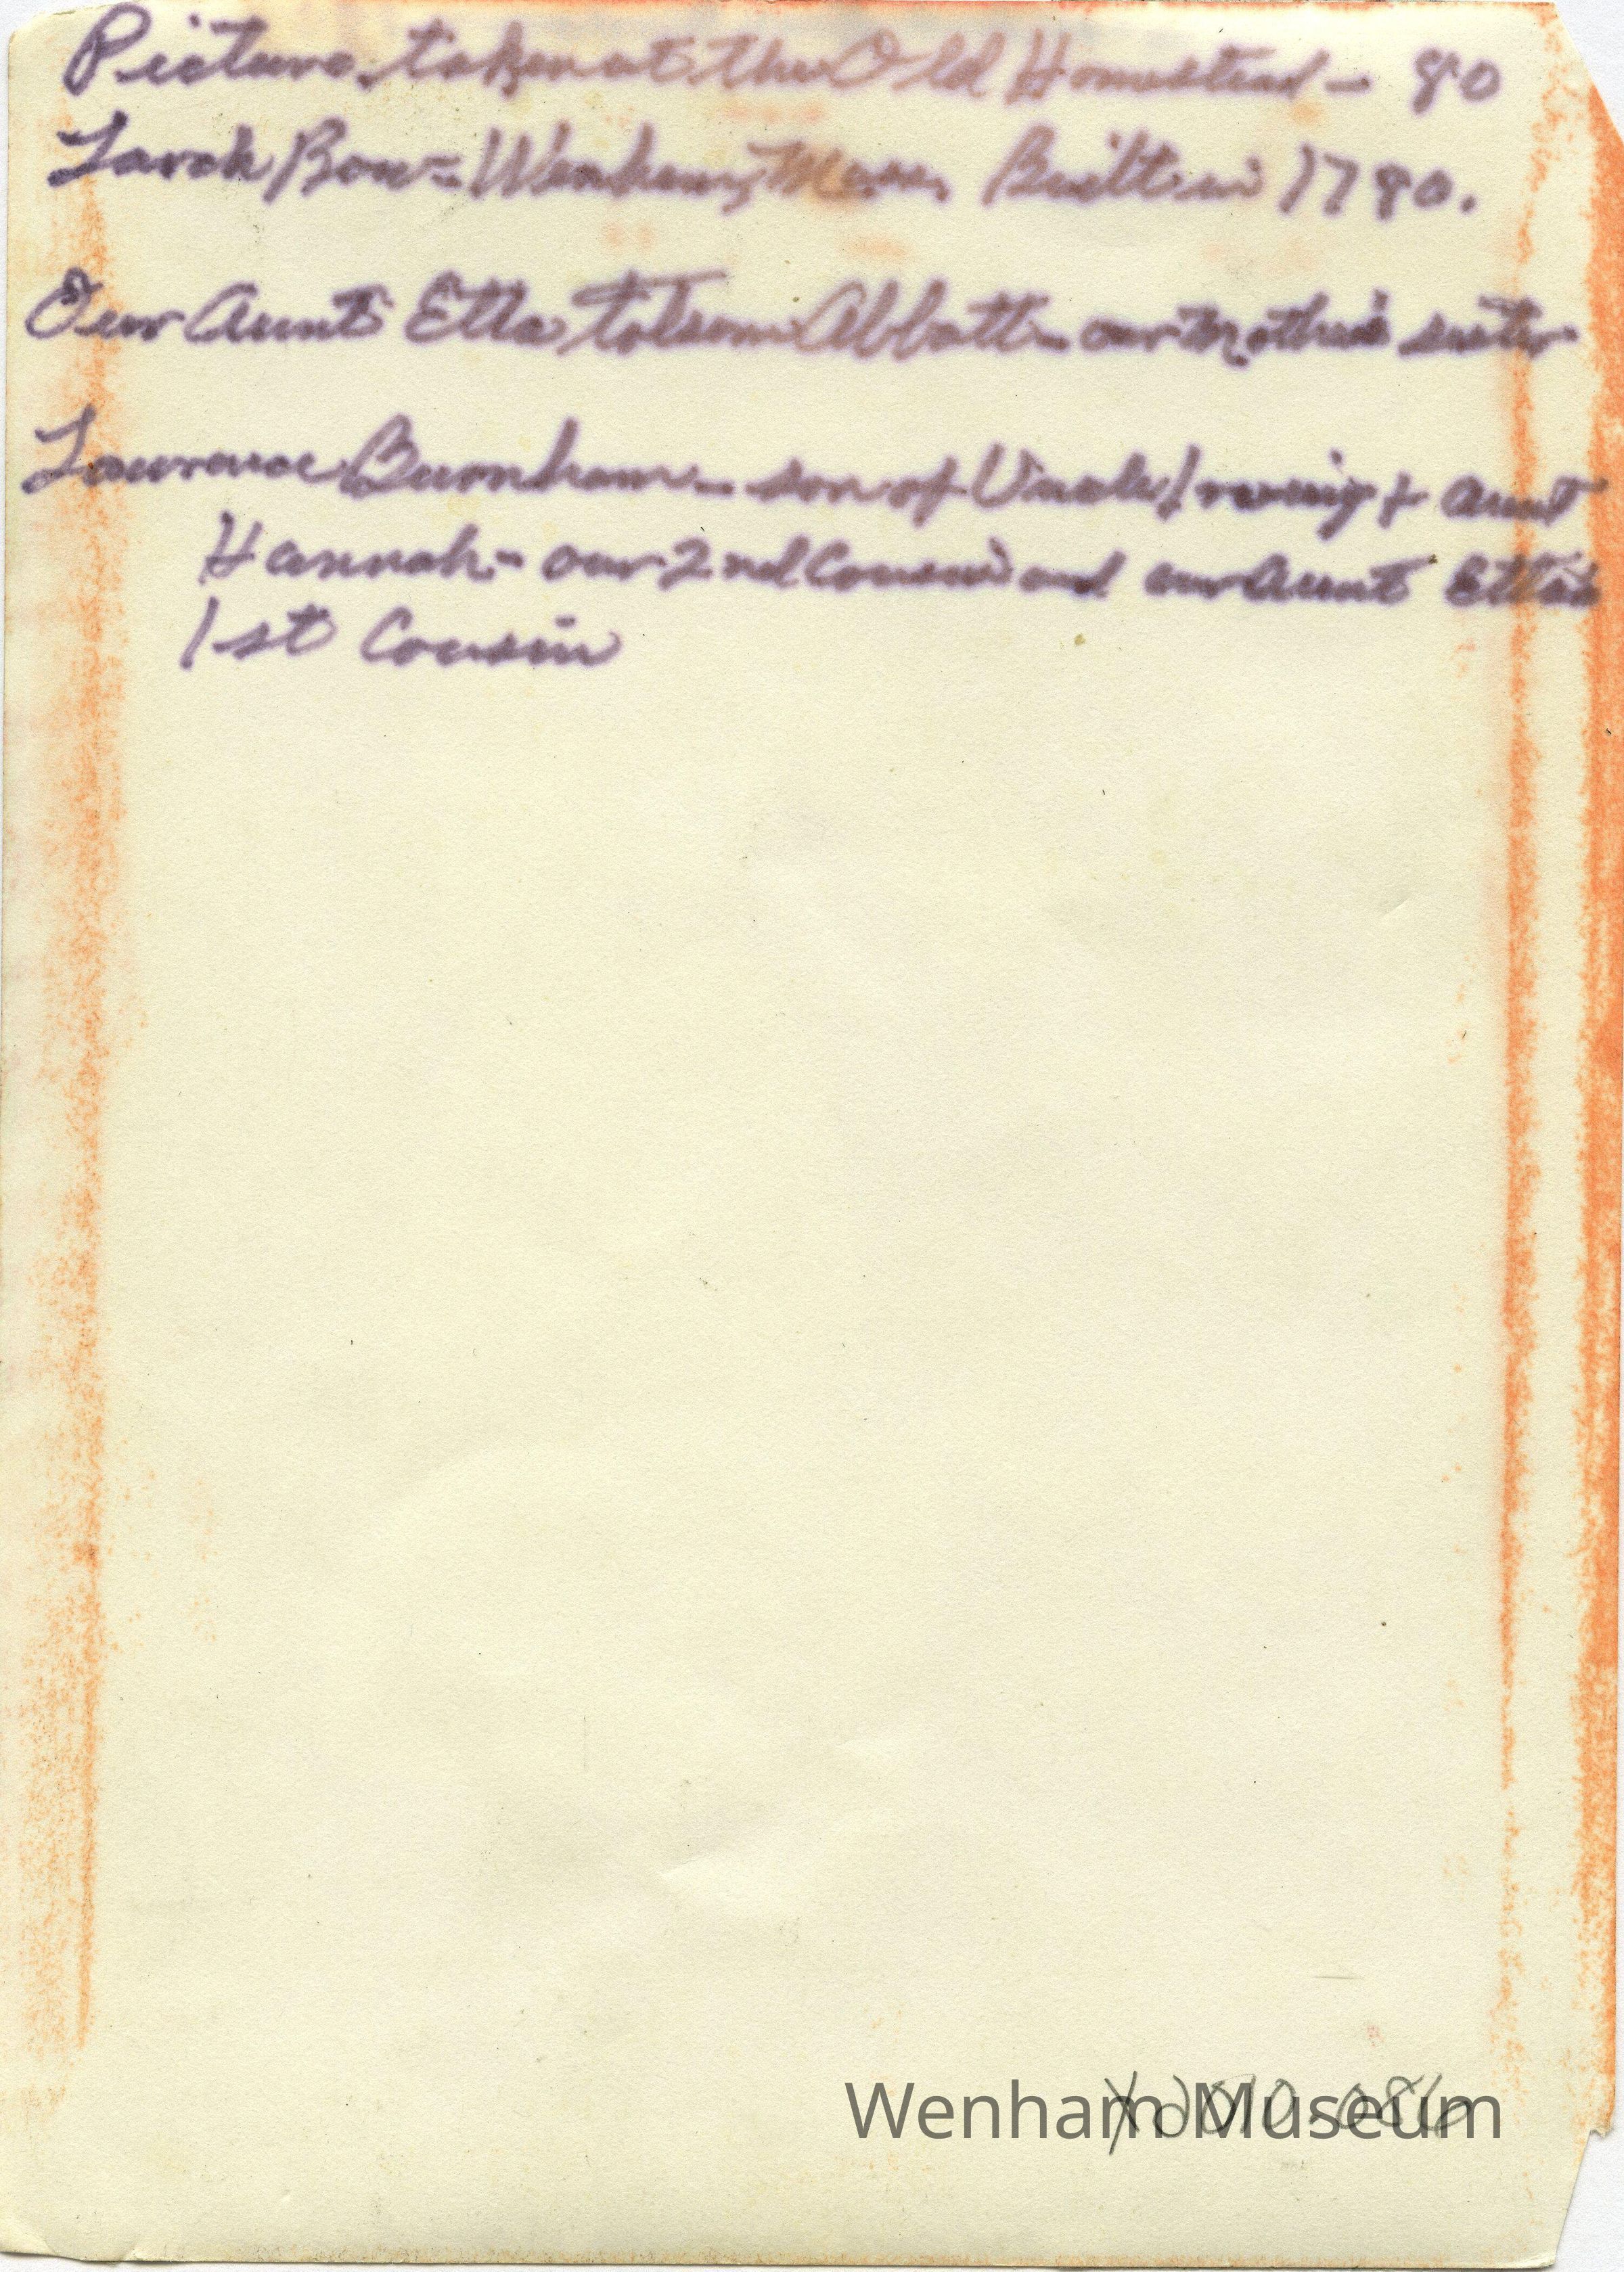 Picture taken at the Old Homestead - 80
Larch Row - Wenham, Mass. Built in 1780.
Our Aunt Etta Abbott - our Mother's sister
Lawrence Burnham - son of Uncle Irving & Aunt
Hannah - our 2nd Cousin and our Aunt Etta's
1st Cousin
Wenham Museum
X2010.086